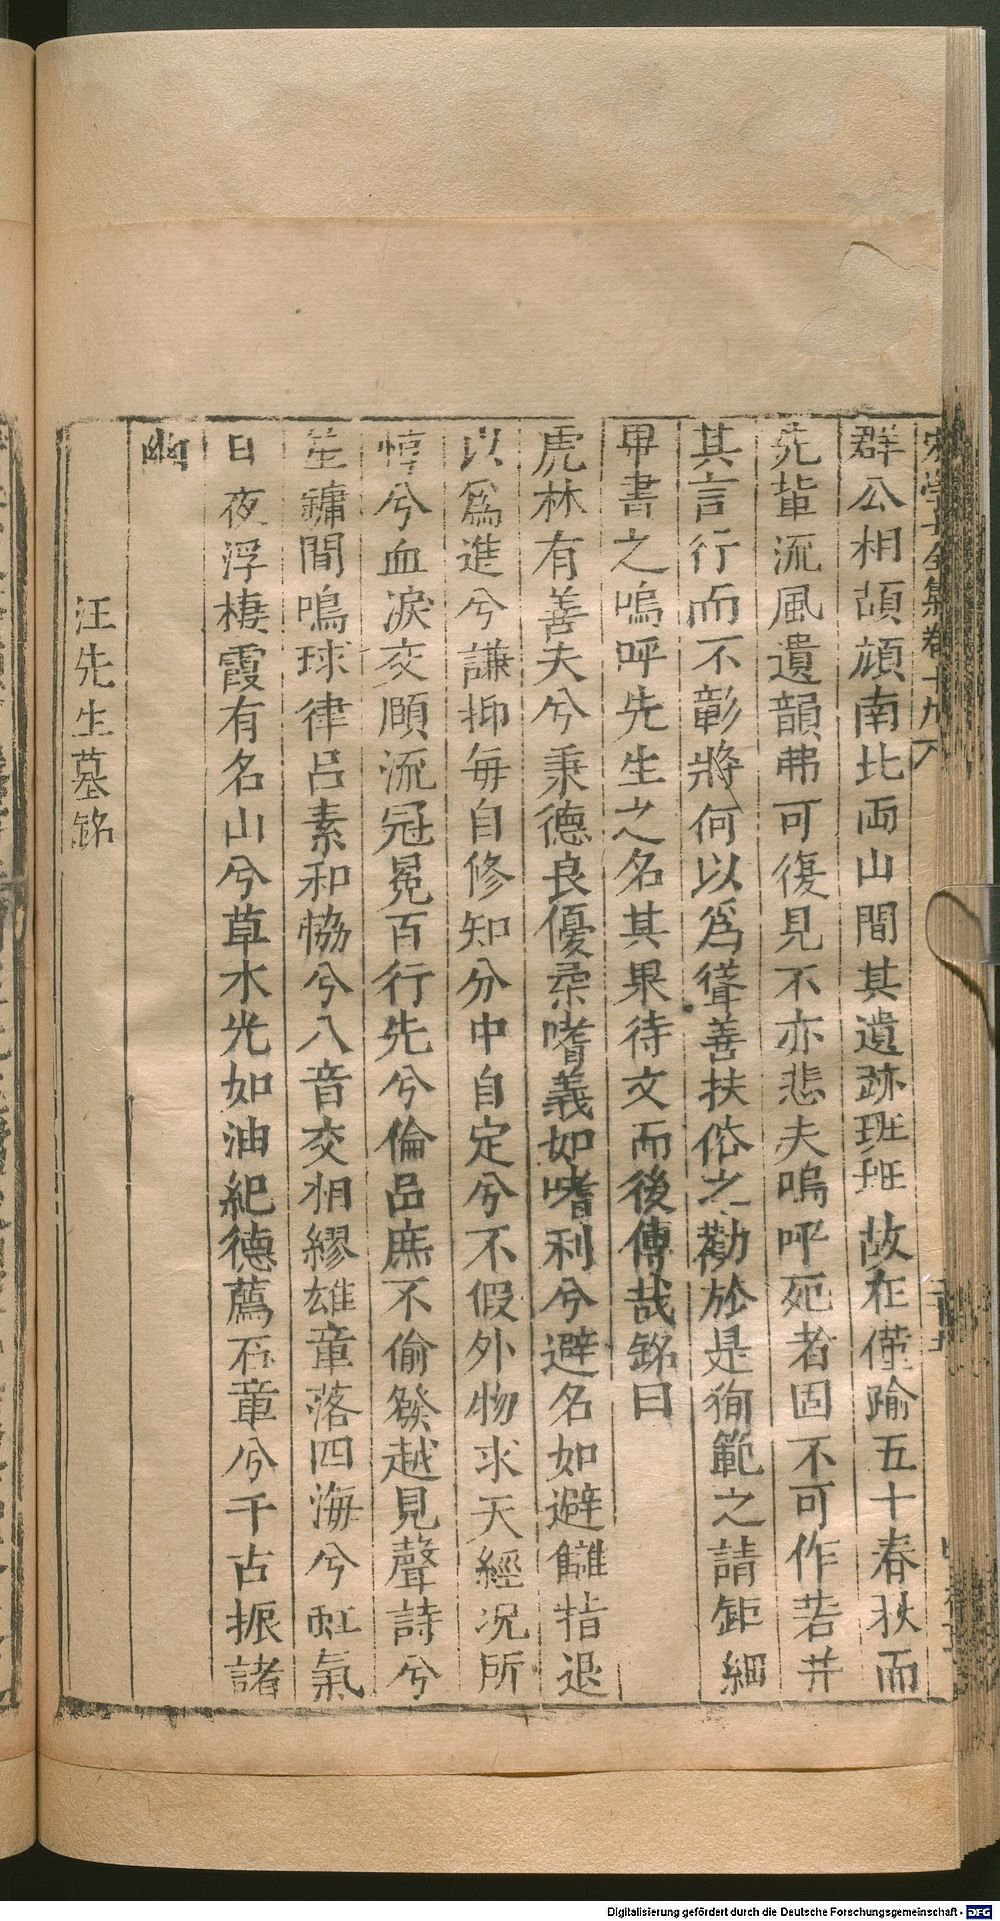 宋學士全集卷十九
群公相頡頏南北両山間其遺跡班班故在僅踰五十春秋而
先輩流風遺韻弗可復見不亦悲夫嗚呼死者固不可作若并
其言行而不彰將何以爲聳善扶俗之勸於是徇範之請鉅細
畢書之嗚呼先生之名其果待文而後傳哉銘曰
虎林有善夫兮秉德良優柔嗜義如嗜利兮避名如避讎指退
以爲進兮謙抑每自修知分中自定兮不假外物求天經况所
惇兮血淚交頤流冠冕百行先兮倫品庶不偷發越見聲詩兮
笙鏞間鳴球律呂素和恊兮八音交相繆雄章落四海兮虹氣
日夜浮棲霞有名山兮草木光如油紀德薦石章兮千古振諸
幽
汪先生墓銘
Digitalisierung gefördert durch die Deutsche Forschungsgemeinschaft - DFG